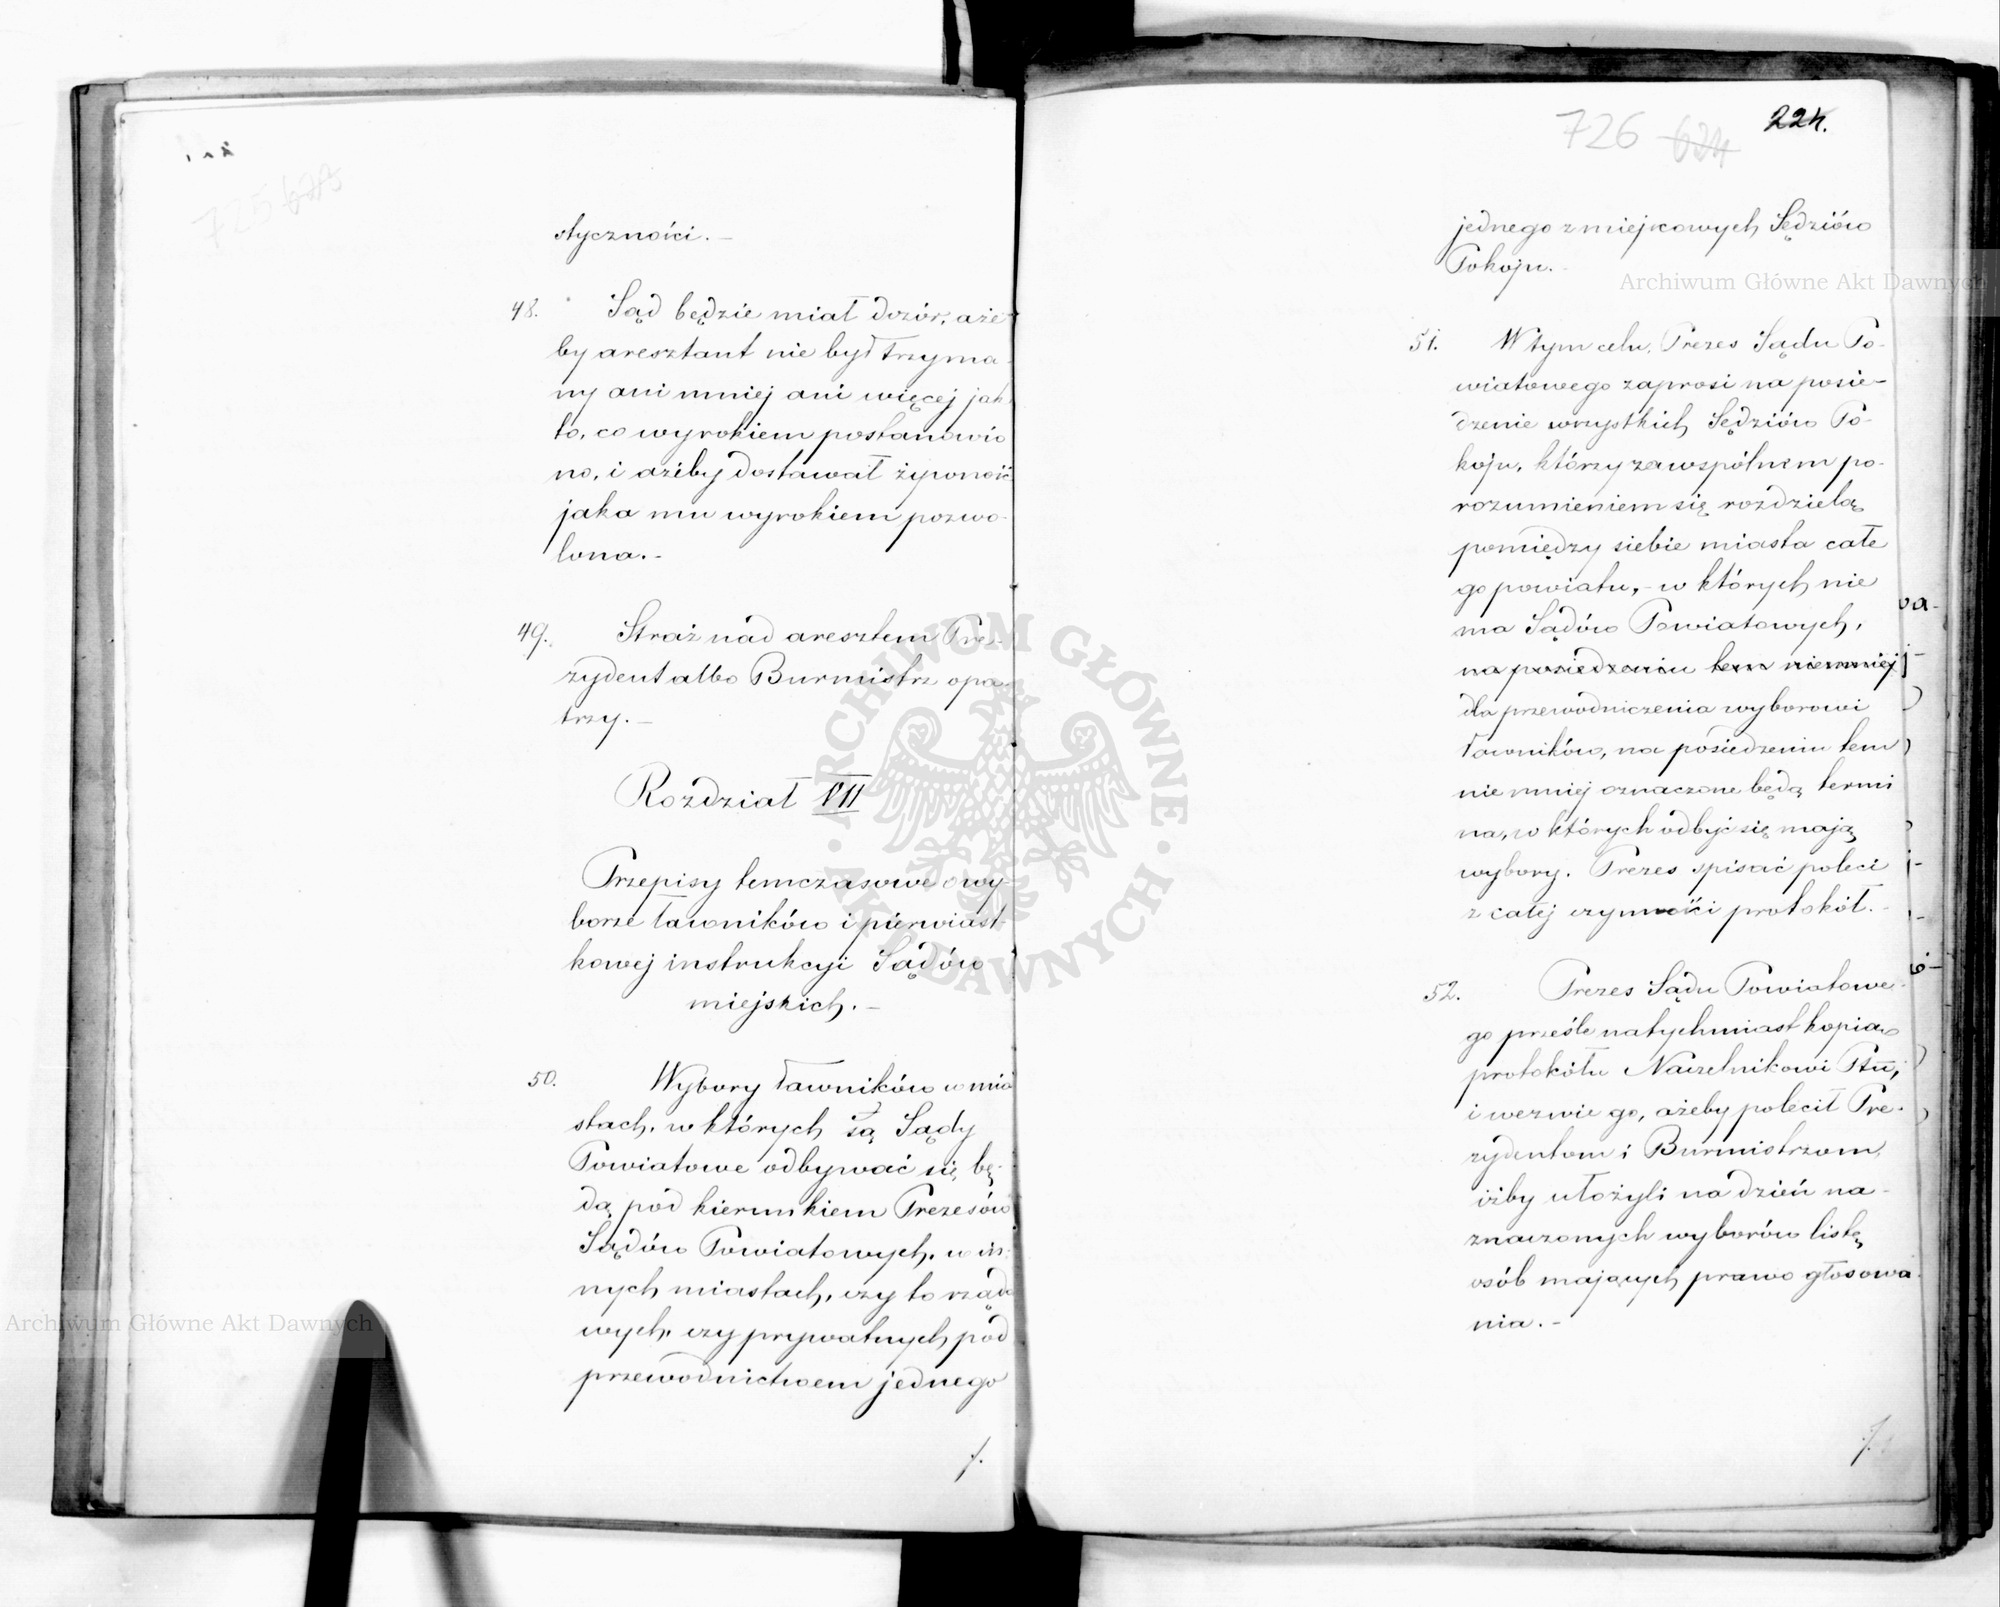 725
styczności. –
48. Sąd będzie miał dozór, aże
by aresztant nie był trzyma-
ny ani mniej ani więcej jak
to, co wyrokiem postanowio
no, i ażeby dostawał żywność
jaka mu wyrokiem pozwo-
lona. –
49. Straż nad aresztem Pre-
zydent albo Burmistrz opa-
trzy. –
Rozdział VII
Przepisy temczasowe o wy-
borze ławników i pierwiast-
kowej instrukcyi Sądów
miejskich. –
50. Wybory ławników w mia
stach, w których są Sądy
Powiatowe odbywać się bę-
dą pod kierunkiem Prezesów
Sądów Powiatowych, w in-
nych miastach, czy to rządo
wych, czy prywatnych pod
przewodnictwem jednego
/.
726 624 224.
jednego z miejscowych Sędziów
Pokoju. –
51. W tym celu, Prezes Sądu Po-
wiatowego zaprosi na posie-
dzenie wszystkich Sędziów Po-
koju, którzy za wspólnem po-
rozumieniem się rozdzielą
pomiędzy siebie miasta całe
go powiatu, – w których nie
ma Sądów Powiatowych,
na posiedzeniu tem niemniej
dla przewodniczenia wyborowi
ławników, na posiedzeniu tem
nie mniej oznaczone będą termi
na, w których odbyć się mają
wybory. Prezes spisać poleci
z całej czynności protokół. –
52. Prezes Sądu Powiatowe-
go prześle natychmiast kopią
protokółu Naczelnikowi Ptu,
i wezwie go, ażeby polecił Pre-
zydentom i Burmistrzom,
iżby ułożyli na dzień na-
znaczonych wyborów listę
osób mających prawo głosowa-
nia. –
/.
Archiwum Główne Akt Dawnych
Archiwum Główne Akt Dawnych
ARCHIWUM GŁÓWNE · AKT DAWNYCH ·